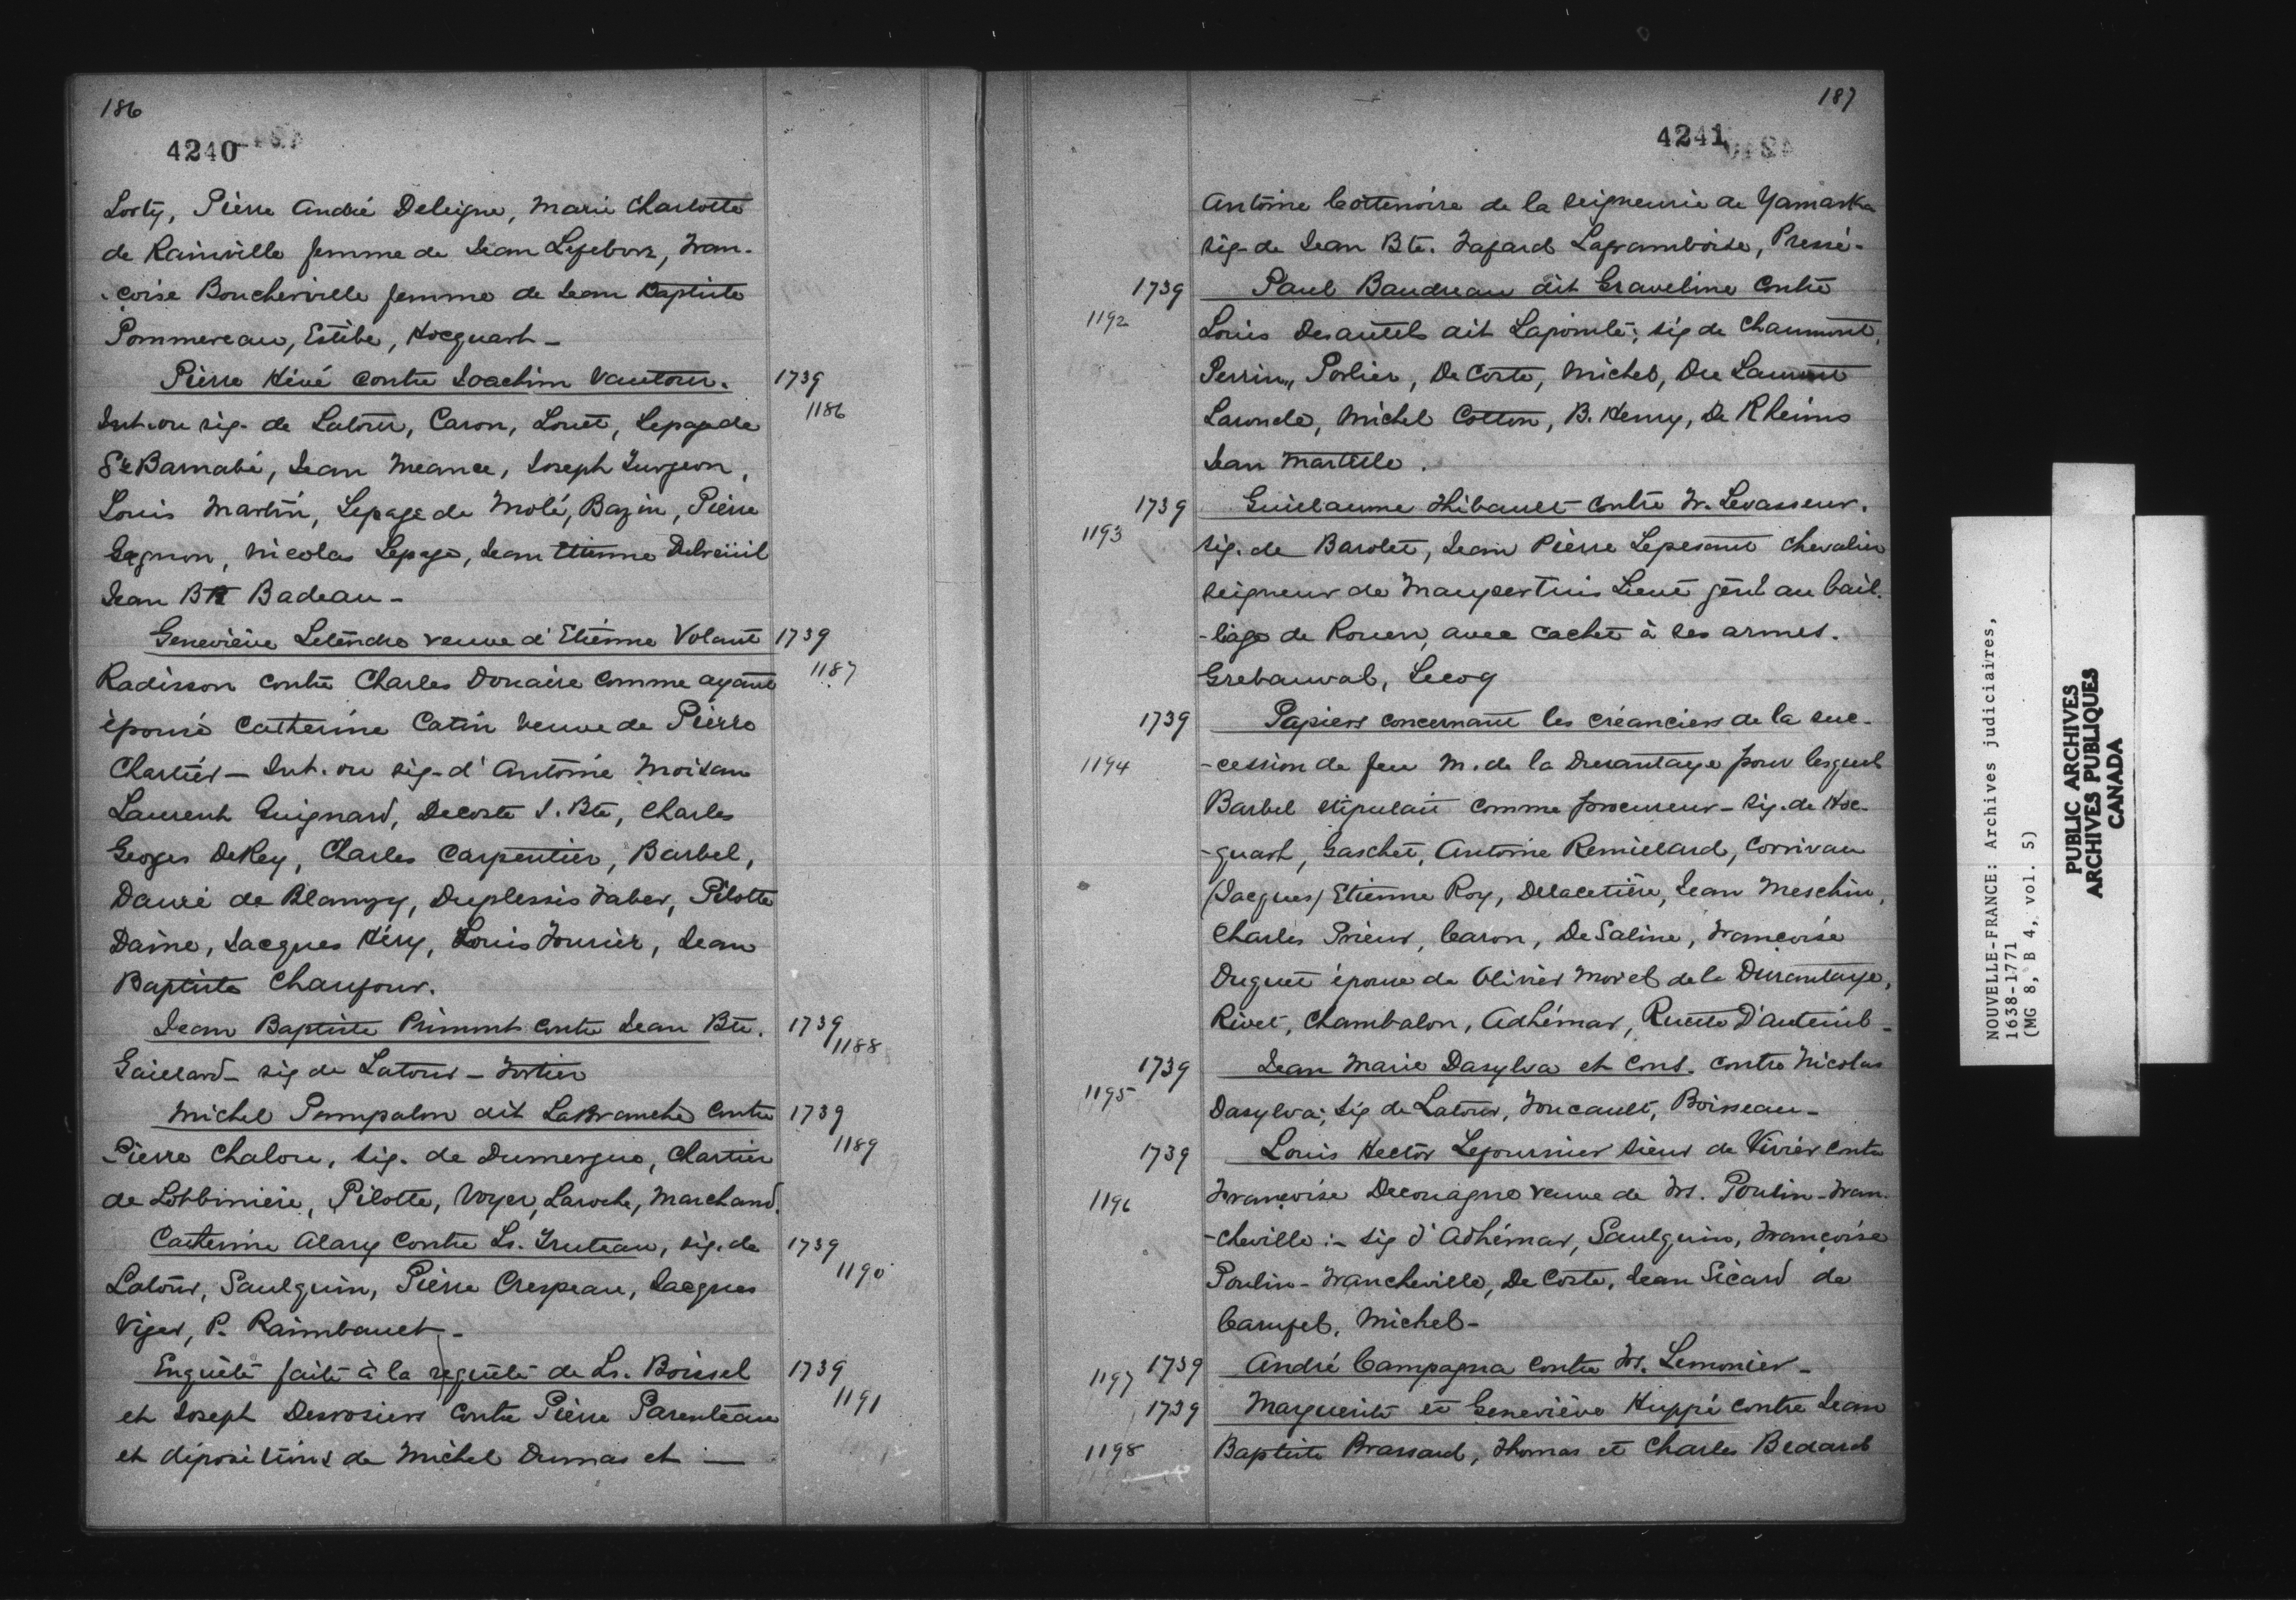 186
4240
Lorty, Pierre André Deleigne, Marie Charlotte
de Rainville femme de Jean Lefebvre, Fran-
-çoise Boucherville femme de Jean Baptiste
Pommereau, Estèbe, Hocquart -
Pierre Hévé contre Joachim Vautour. 1739
1186
Int. ou sig. de Latour, Caron, Louet, Lepage de
Ste Barnabé, Jean Meance, Joseph Turgeon,
Louis Martin, Lepage de Molé, Bazin, Pierre
Gagnon, Nicolas Lepage, Jean Etienne Dubreüil
Jean Bte Badeau -
Geneviève Letendre veuve d'Etienne Volant 1739
1187
Radisson contre Charles Douaire comme ayant
épousé Catherine Catin veuve de Pierre
Chartier - Int. ou sig. d'Antoine Moisan
Laurent Guignard, Decoste J. Bte, Charles
Georges DeRey, Charles Carpentier, Barbel,
Dauré de Blanzy, Duplessis Faber, Pilotte
Daine, Jacques Héry, Louis Fournier, Jean
Baptiste Chaufour.
Jean Baptiste Primont contre Jean Bte. 1739
1188
Gaillard - sig de Latour - Fortier
Michel Pampalon dit LaBranche contre 1739
1189
Pierre Chalou, sig. de Dumergue, Chartier
de Lotbinière, Pilotte, Voyer, Laroche, Marchand.
Catherine Alary contre Ls. Truteau, sig. de 1739
1190
Latour, Saulquin, Pierre Crespeau, Jacques
Viger, P. Raimbault -
Enquête faite à la requête de Ls. Boissel 1739
1191
et Joseph Desrosiers contre Pierre Parenteau
et dépositions de Michel Dumas et —
187
4241
Antoine Cottenoire de la seigneurie de Yamaska
sig. de Jean Bte. Fafard Laframboise, Pressé -
1739 Paul Baudreau dit Graveline contre
1192
Louis Desautels dit Lapointe; sig de Chaumont,
Perrin, Porlier, De Coste, Michel, Du Laurent
Laronde, Michel Cotton, B. Henry, De Rheims
Jean Martelle.
1739 Guillaume Thibault contre Fr. Levasseur.
1193
sig. de Barolet, Jean Pierre Lepesant chevalier
seigneur de Maupertuis Lieut génl au bail-
-liage de Rouen, avec cachet à ses armes.
Grebauval, Lecoq
1739 Papiers concernant les créanciers de la suc-
1194
-cession de feu M. de la Durantaye pour lesquels
Barbel stipulait comme procureur - sig. de Hoc-
-quart, Gaschet, Antoine Remillard, Corrivau
(Jacques) Etienne Roy, Delacetière, Jean Meschin,
Charles Prieur, Caron, De Saline, Françoise
Duquet épouse de Olivier Morel de la Durantaye,
Rivet, Chambalon, Adhémar, Ruette D'auteuil -
1739 Jean Marie Dasylva et cons. contre Nicolas
1195
Dasylva; sig de Latour, Foucault, Boisseau -
1739 Louis Hector Lefournier sieur de Vivier contre
1196
Françoise Decouagne veuve de Frs. Poulin-Fran-
-cheville :- sig d'Adhémar, Saulquin, Françoise
Poulin-Francheville, De Coste, Jean Sicard de
Carufel, Michel -
1197 1739 André Campagna contre Frs. Lemonier -
1739 Marguerite et Geneviève Huppé contre Jean
1198
Baptiste Brassard, Thomas et Charles Bedard
NOUVELLE-FRANCE: Archives judiciaires,
1638-1771
(MG 8, B 4, vol. 5)
PUBLIC ARCHIVES
ARCHIVES PUBLIQUES
CANADA